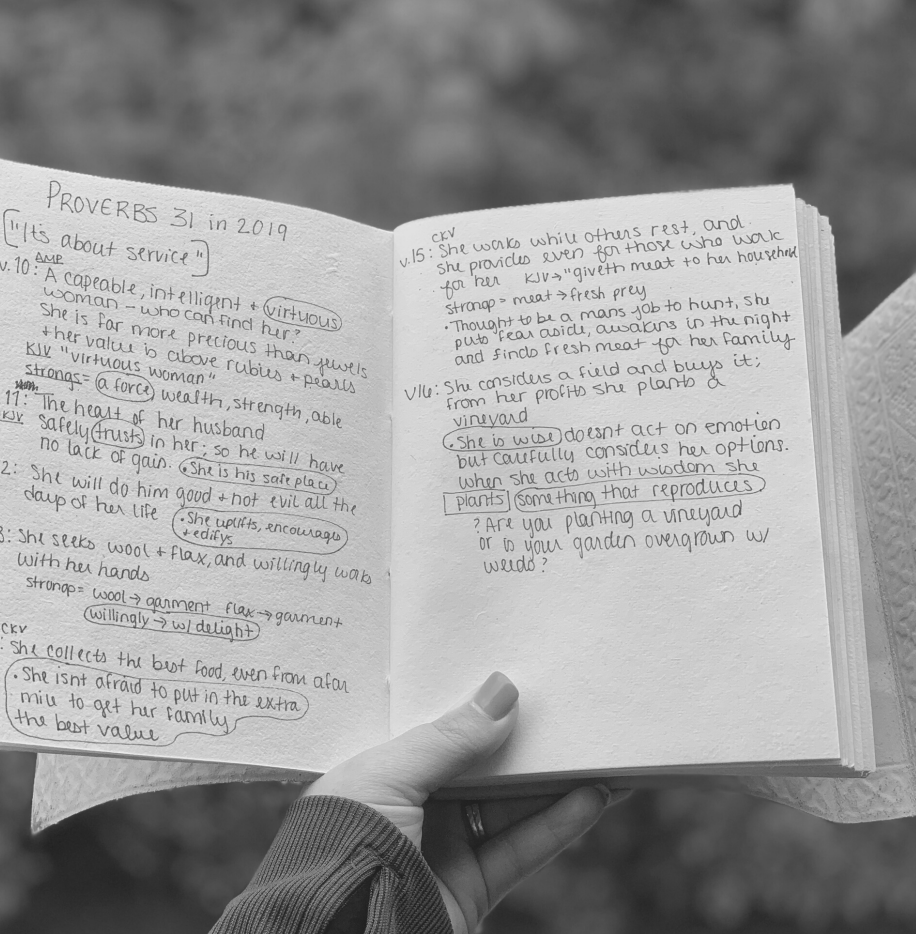 PROVERBS 31 in 2019
["It's about service"]
AMP
v.10: A capeable, intelligent + virtuous
woman - who can find her?
She is far more precious than jewels
+ her value is above rubies + pearls
KJV "virtuous woman"
strongs = a force wealth, strength, able
11: The heart of her husband
KJV safely trusts in her; so he will have
no lack of gain. • She is his safe place
2: She will do him good + not evil all the
days of her life • She uplifts, encourages
+ edifys
3: She seeks wool + flax, and willingly works
with her hands
strongs = wool → garment flax → garment
willingly → w/ delight
CKV
: She collects the best food, even from afar
• She isnt afraid to put in the extra
mile to get her family
the best value
CKV
v.15: She works while others rest, and
she provides even for those who work
for her KJV → "giveth meat to her household
strongs = meat → fresh prey
• Thought to be a mans job to hunt, she
puts fear aside, awakins in the night
and finds fresh meat for her family
v16: She considers a field and buys it;
from her profits she plants a
vineyard
• She is wise doesnt act on emotion
but carefully considers her options.
when she acts with wisdom she
plants something that reproduces
? Are you planting a vineyard
or is your garden overgrown w/
weeds?